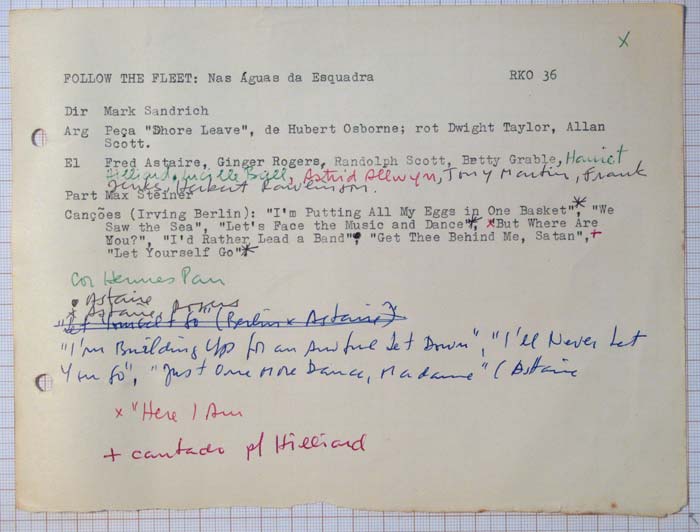 x
FOLLOW THE FLEET: Nas Águas da Esquadra RKO 36
Dir Mark Sandrich
Arg Peça "Shore Leave", de Hubert Osborne; rot Dwight Taylor, Allan
Scott.
El Fred Astaire, Ginger Rogers, Randolph Scott, Betty Grable, Harriet
Hilliard, Lucille Ball, Astrid Allwyn, Tony Martin, Frank
Jenks, Herbert Rawlinson.
Part Max Steiner
Canções (Irving Berlin): "I'm Putting All My Eggs in One Basket"*, "We
Saw the Sea", "Let's Face the Music and Dance"*, x"But Where Are
You?", "I'd Rather Lead a Band"•, "Get Thee Behind Me, Satan",+
"Let Yourself Go"*
Cor Hermes Pan
• Astaire
* Astaire, Rogers
"Let Yourself Go" (Berlin x Astaire)*
"I'm Building Up for an Awful Let Down", "I'll Never Let
You Go", "Just One More Dance, Madame" (Astaire
x "Here I Am
+ cantado p/ Hilliard